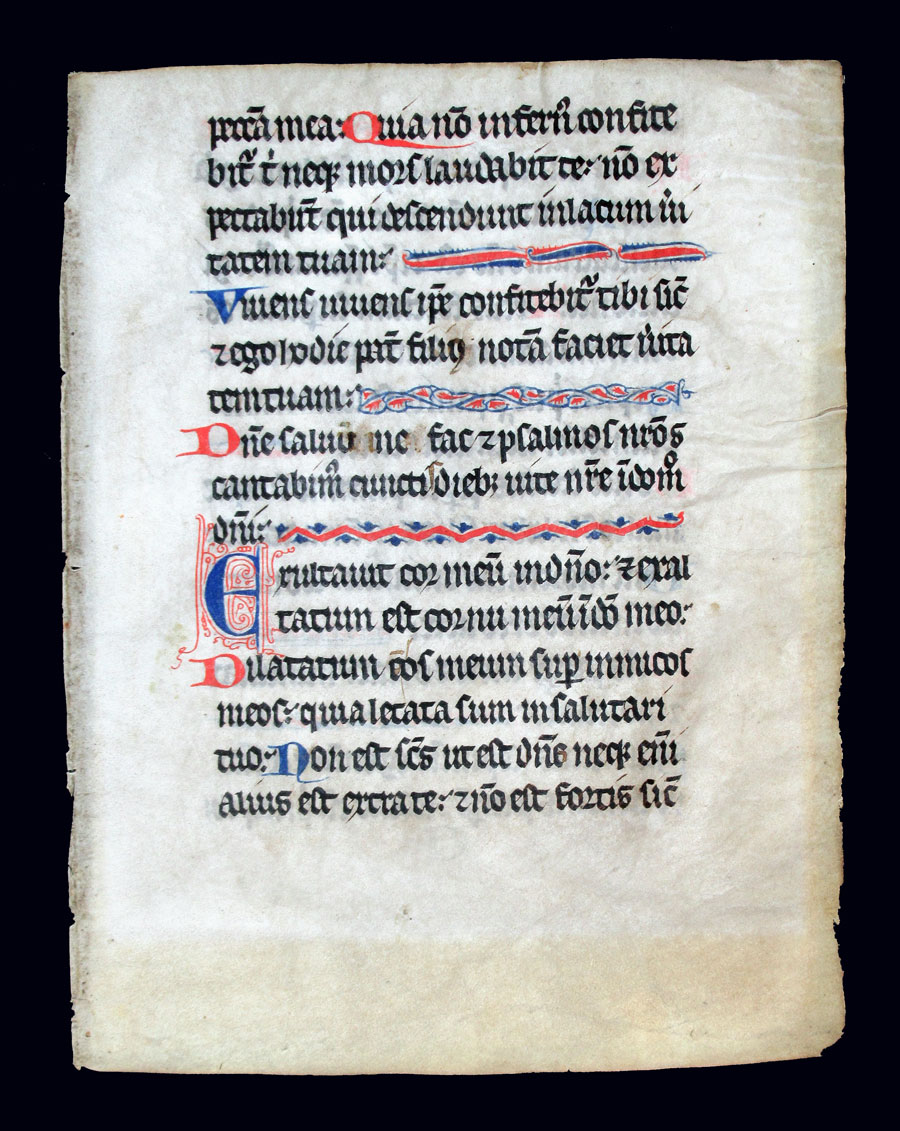 peccā mea: Quia nō infern᷒ confite
bit᷑ t᷑ neq; mors laudabit te: nō ex
pectabūt qui descendunt in lacum u᷑i
tatem tuam:
Viuens uiuens ip̄e confitebit᷑ tibi sic̄
⁊ ego hodie pat̄ filiꝰ notā faciet u᷑ita
tem tuam:
Dn̄e saluū me fac ⁊ psalmos nr̄os
cantabimꝰ cunctis dieb; uite nr̄e ī domo
dn̄i:
Exultauit cor meū in dn̄o: ⁊ exal
tatum est cornu meū ī dō meo:
Dilatatum ē os meum sup̄ inimicos
meos: quia letata sum in salutari
tuo: Non est sc̄s ut est dn̄s neq; eni᷑
alius est extra te: ⁊ nō est fortis sic̄